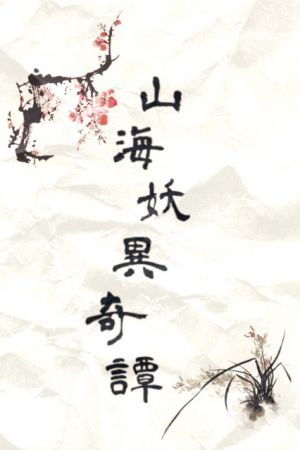 山海妖異奇譚